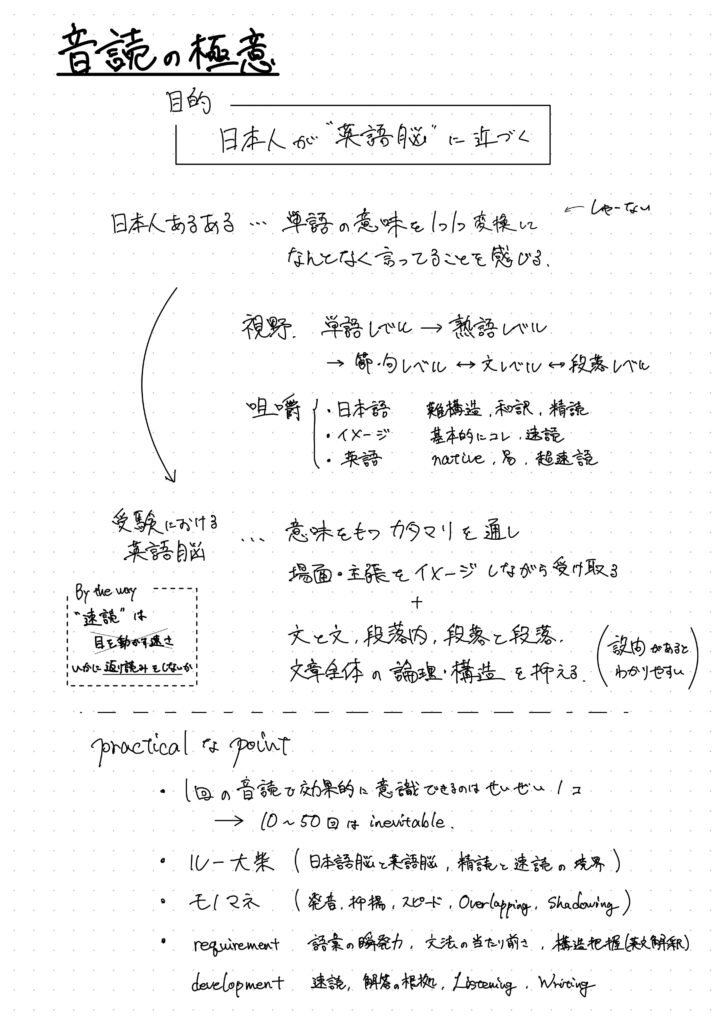 音読の極意
目的
日本人が"英語脳"に近づく
日本人あるある … 単語の意味を1つ1つ変換して ← しゃーない
なんとなく言ってることを感じる.
視野. 単語レベル → 熟語レベル
→ 節・句レベル ↔ 文レベル ↔ 段落レベル
咀嚼
・日本語 難構造, 和訳, 精読
・イメージ 基本的にコレ, 速読
・英語 native, 易, 超速読
受験における
英語脳 … 意味をもつカタマリを通し
場面・主張をイメージしながら受け取る
+
文と文, 段落内, 段落と段落.
文章全体の論理・構造を抑える. (設問があると
わかりやすい)
By the way
"速読"は
目を動かす速さ
いかに返り読みをしないか
practical な point
・1回の音読で効果的に意識できるのはせいぜい1コ
→ 10〜50回は inevitable.
・ルー大柴 (日本語脳と英語脳, 精読と速読の境界)
・モノマネ (発音, 抑揚, スピード, Overlapping, Shadowing)
・requirement 語彙の瞬発力, 文法の当たり前さ, 構造把握(英文解釈)
development 速読, 解答の根拠, Listening, Writing